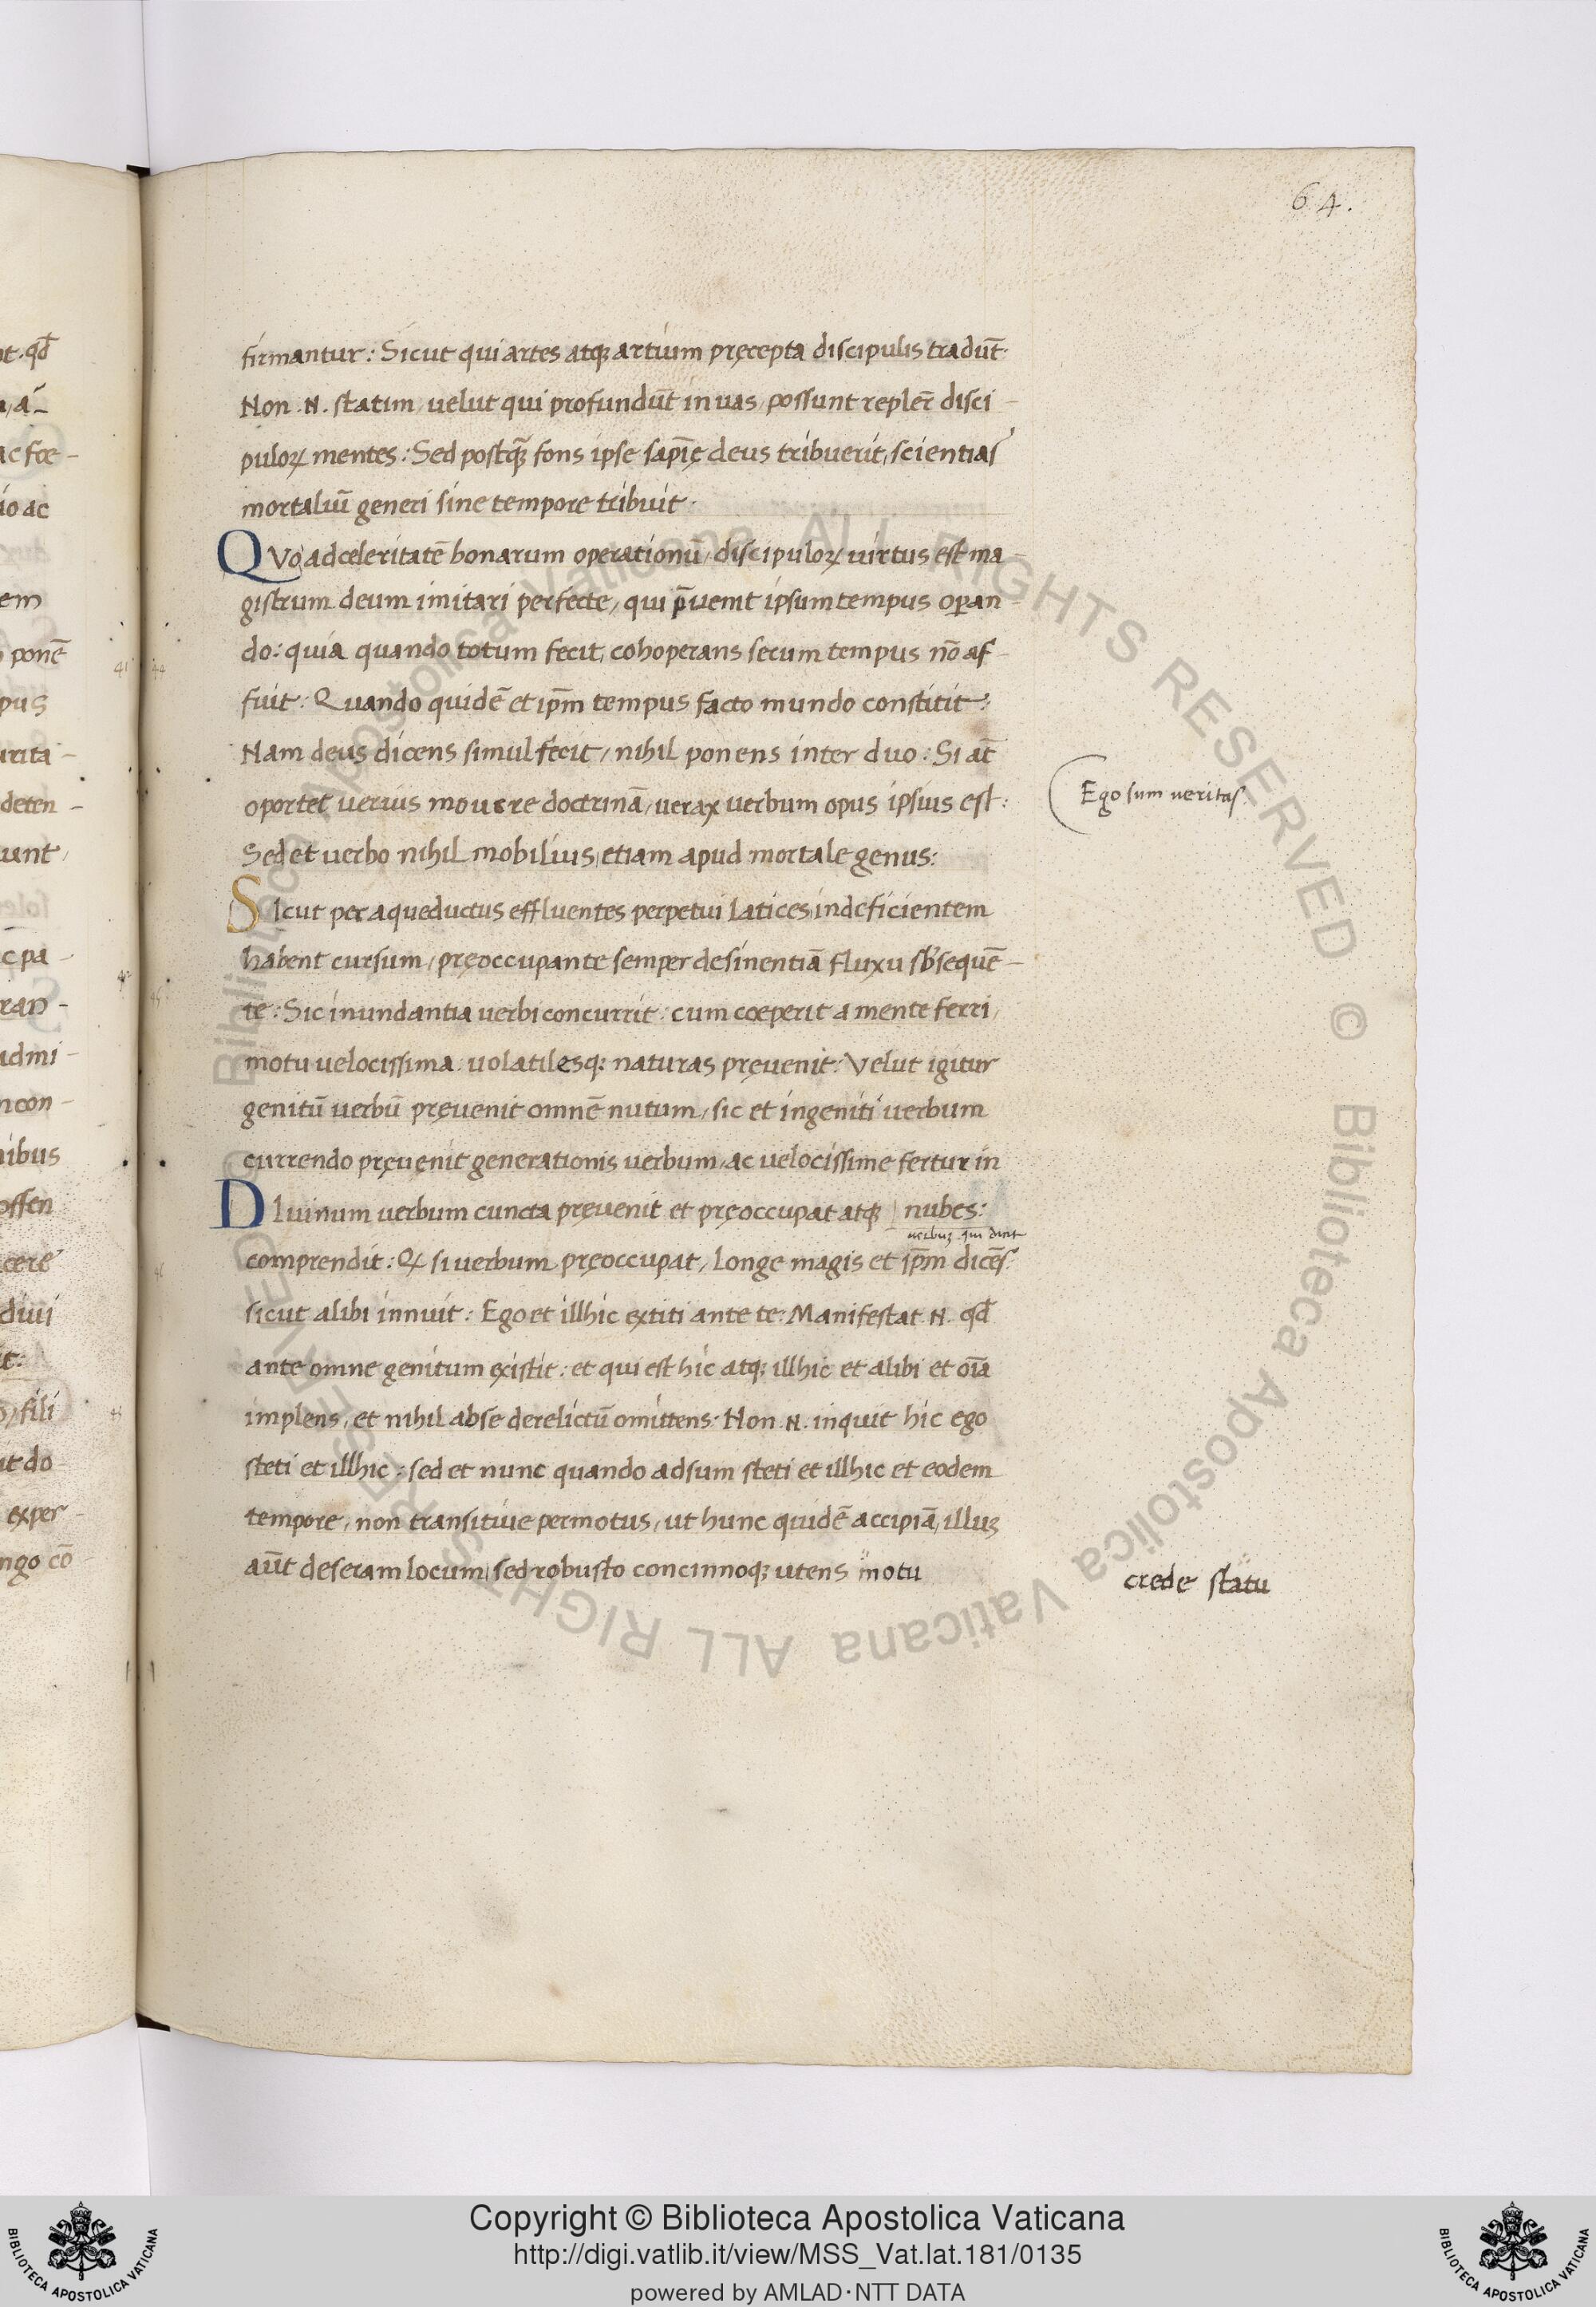 64.
firmantur: Sicut qui artes atq; artium pręcepta discipulis tradūt:
Non .N. statim, velut qui profundūt in vas, possunt repler̄ disci-
puloꝝ mentes: Sed postq̄ꝫ fons ipse sapīę deus tribuerit, scientias
mortaliū generi sine tempore tribuit.
QVo ad celeritatē bonarum operationū, discipuloꝝ virtus est ma-
gistrum deum imitari perfecte, qui p̄uenit ipsum tempus opan-
do: quia quando totum fecit, cohoperans secum tempus nō af-
fuit: Quando quidē et ip̄m tempus facto mundo constitit:
Nam deus dicens simul fecit, nihil ponens inter duo: Si at̄
oportet verius mouere doctrinā, verax verbum opus ipsius est:
Ego sum ueritas
Sed et verbo nihil mobilius, etiam apud mortale genus:
SIcut per aqueductus effluentes perpetui latices, indeficientem
habent cursum, pręoccupante semper desinentiā fluxu sb̓sequē-
te: Sic inundantia uerbi concurrit: cum cœperit a mente ferri,
motu uelocissima: uolatilesq; naturas pręuenit: Velut igitur
genitū uerbū pręuenit omnē nutum, sic et ingeniti uerbum
currendo pręuenit generationis uerbum, ac uelocissime fertur in
DIuinum uerbum cuncta pręuenit et pręoccupat atq; | nubes:
uerbuꝫ qui dicit
comprendit: Qꝫ si uerbum pręoccupat, longe magis et ip̄m dicēs:
sicut alibi innuit: Ego et illhic extiti ante te: Manifestat .N. qđ
ante omne genitum existit: et qui est hic atq; illhic et alibi et oīa
implens, et nihil abse derelictū omittens: Non .N. inquit hic ego
steti et illhic: sed et nunc quando adsum steti et illhic et eodem
tempore, non transitiue permotus, ut hunc quidē accipiā, illuꝫ
aūt deseram locum, sed robusto concinnoq; utens motu
crede statu
Copyright © Biblioteca Apostolica Vaticana
http://digi.vatlib.it/view/MSS_Vat.lat.181/0135
powered by AMLAD·NTT DATA